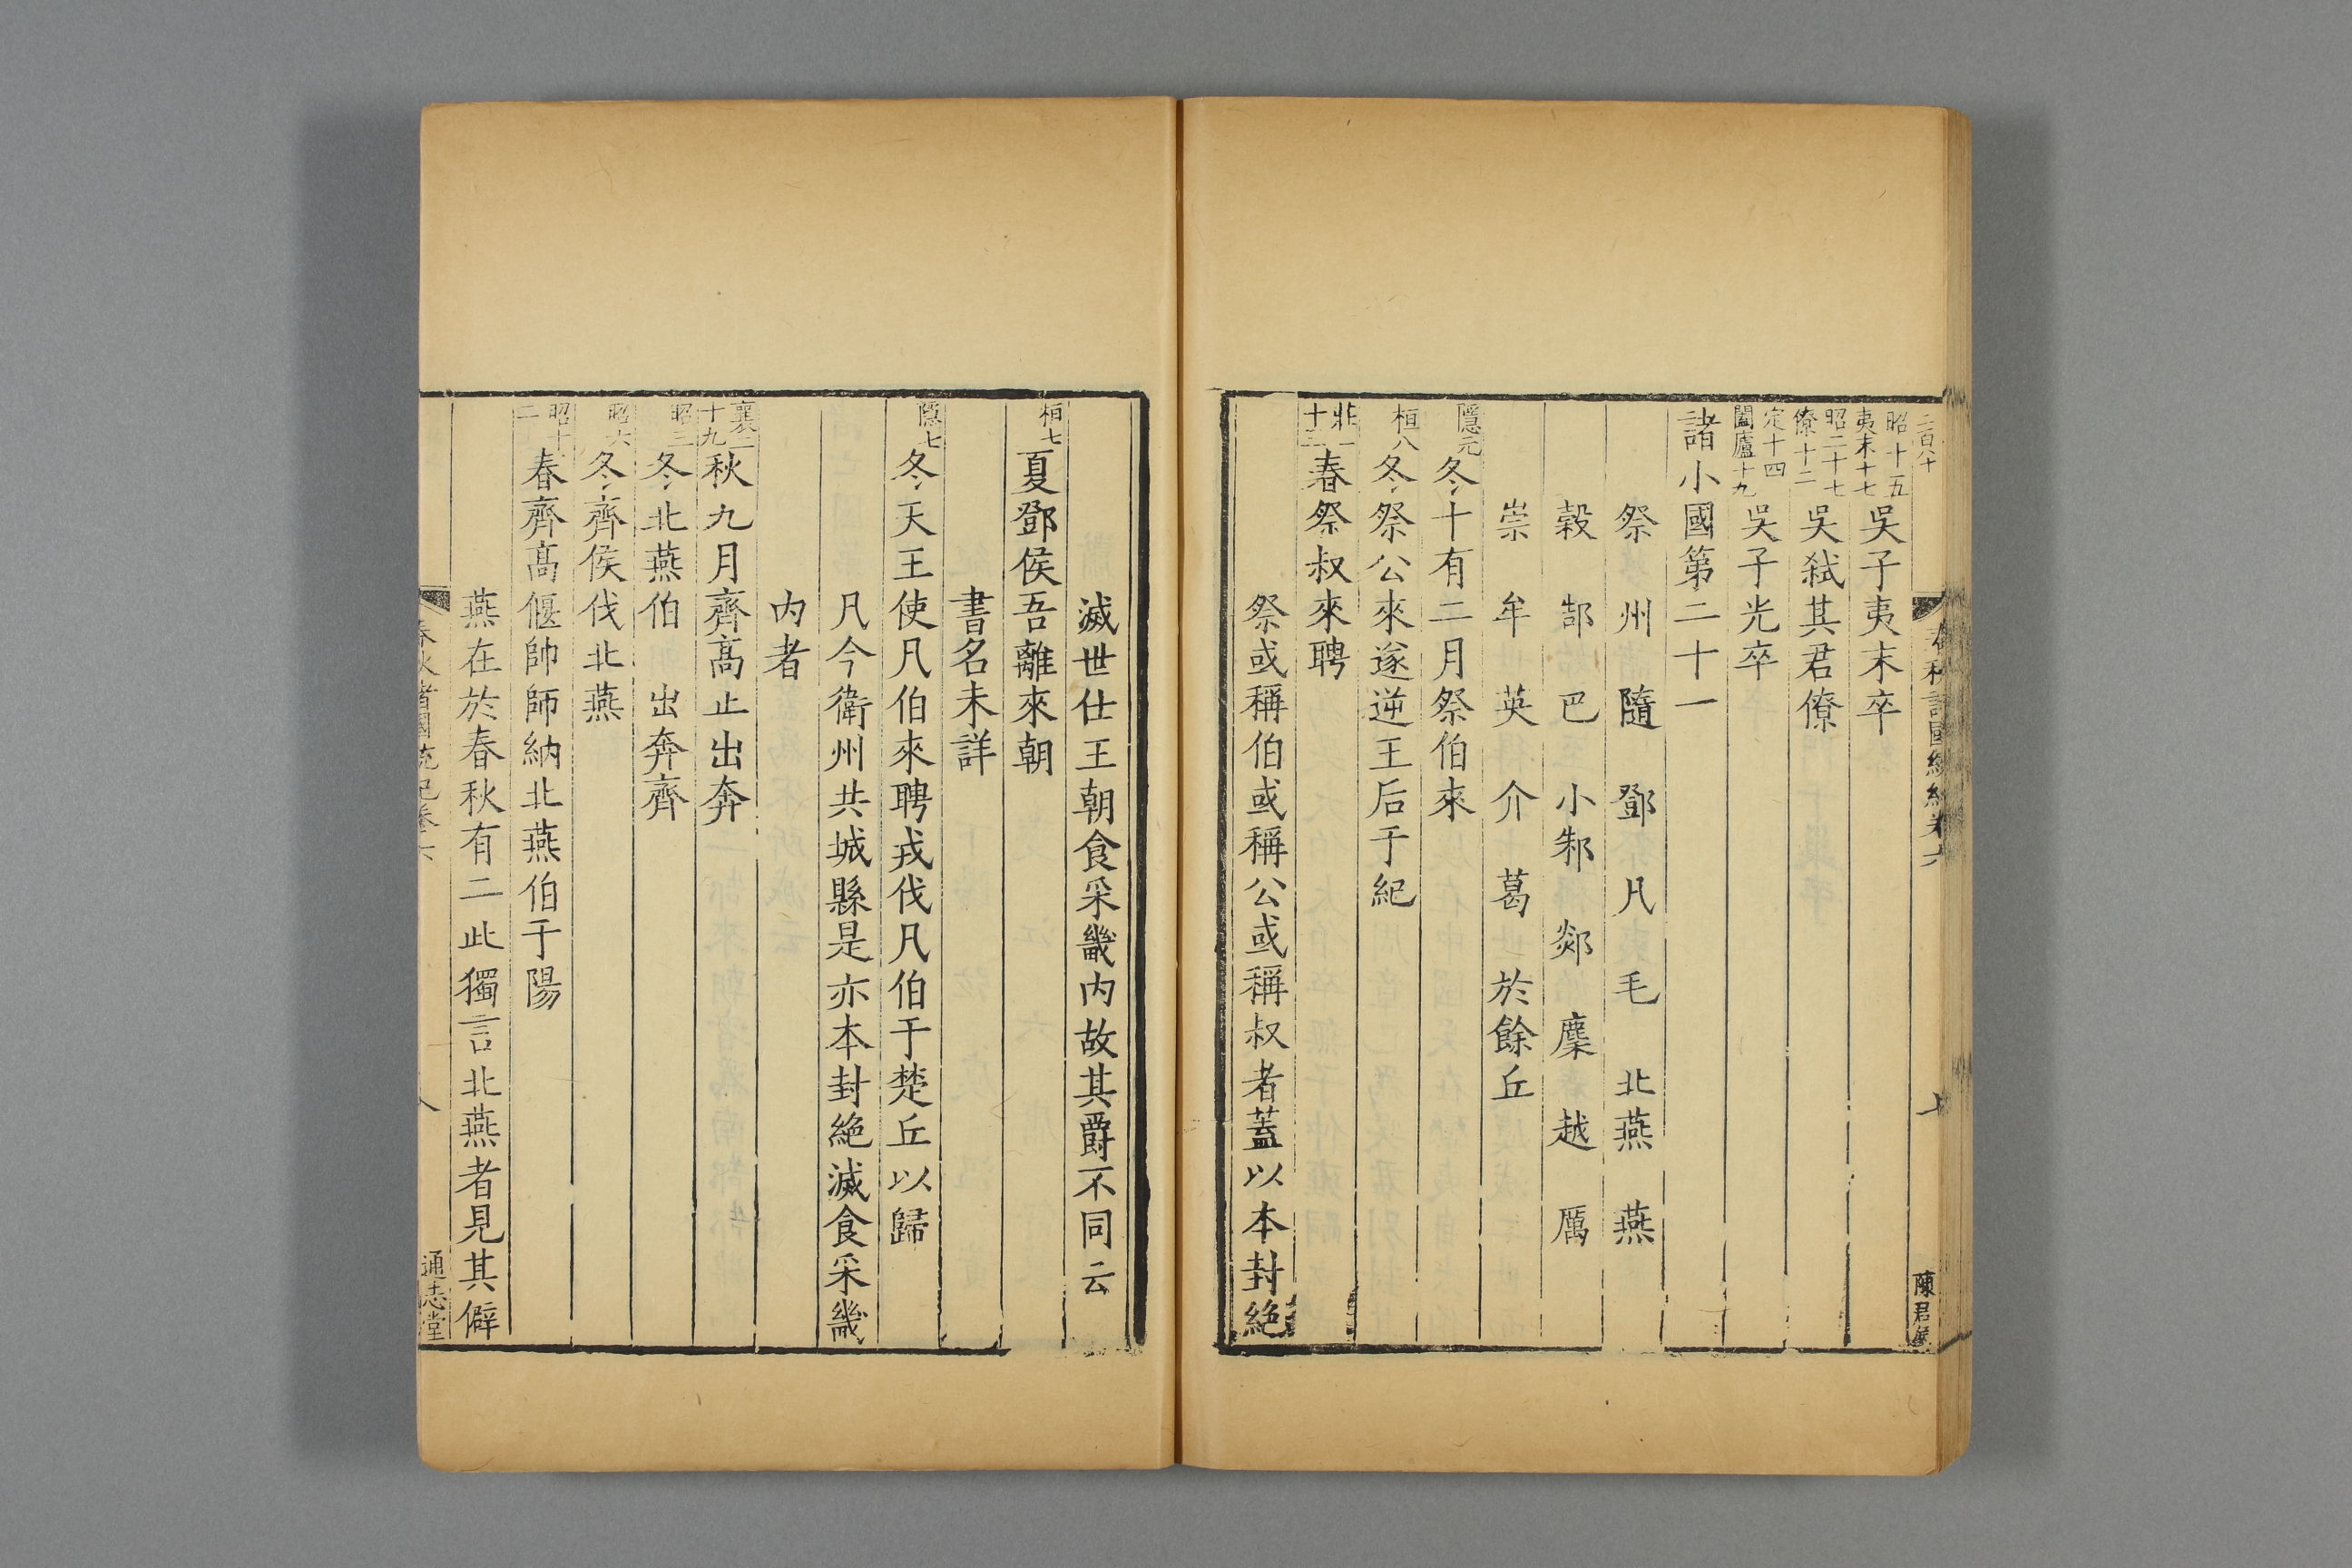 春秋諸國統紀卷六
陳君侯
昭十五
夷末十七
吳子夷末卒
昭二十七
僚十二
吳弑其君僚
定十四
闔廬十九
吳子光卒
諸小國第二十一
祭 州 隨 鄧 凡 毛 北燕 燕
穀 郜 巴 小邾 郯 麇 越 厲
崇 牟 英 介 葛 於餘丘
隱元
冬十有二月祭伯來
桓八
冬祭公來遂逆王后于紀
莊二
十三
春祭叔來聘
祭或稱伯或稱公或稱叔者蓋以本封絶
滅世仕王朝食采畿内故其爵不同云
桓七
夏鄧侯吾離來朝
書名未詳
隱七
冬天王使凡伯來聘戎伐凡伯于楚丘以歸
凡今衛州共城縣是亦本封絶滅食采畿
内者
襄二
十九
秋九月齊高止出奔
昭三
冬北燕伯 出奔齊
昭六
冬齊侯伐北燕
昭十
二
春齊高偃帥師納北燕伯于陽
燕在於春秋有二此獨言北燕者見其僻
春秋諸國統紀卷六
八
通志堂